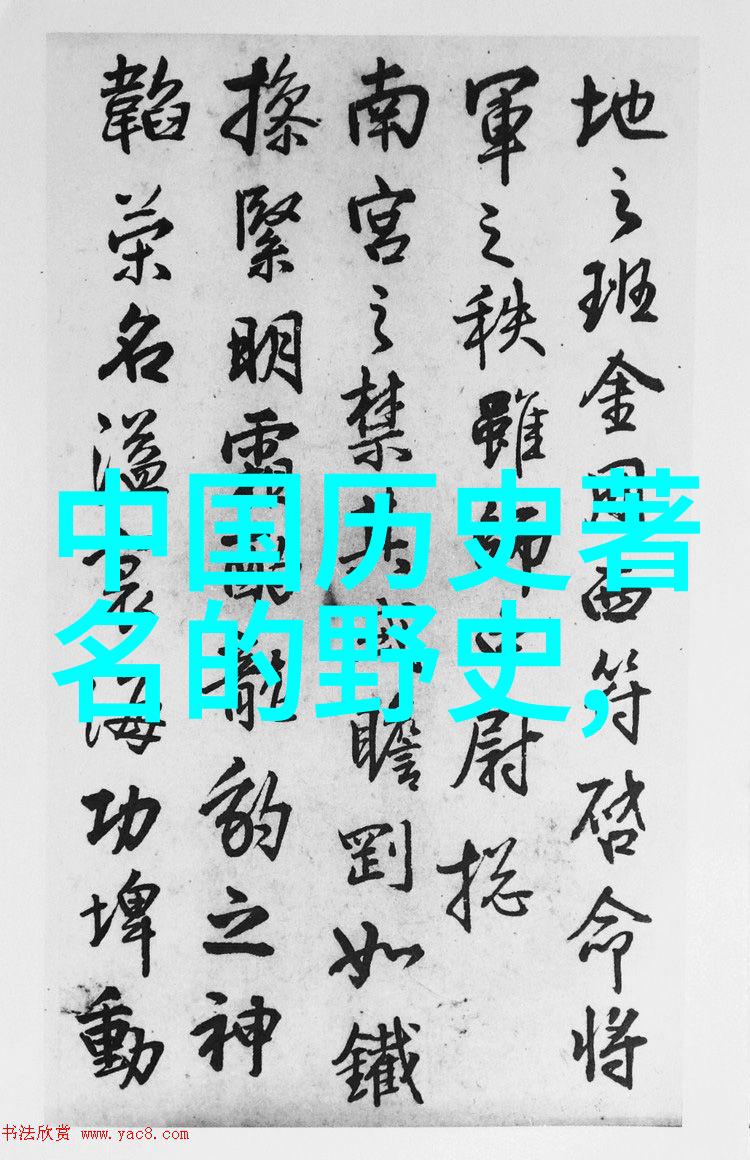 地之班金
西符啓命將
軍之秩雖師
尉揔
南宮之禁
瞻罰如鐵
操緊明
豹之神
韜榮名溢
海功埤動
中国历史著
名的野史，
书法欣赏 www.yac8.com